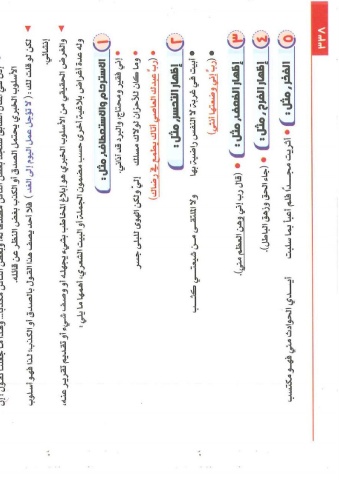 ٣٣٨
الأسلوب الخبري يحتمل الصدق أو الكذب بغض النظر عن قائله.
لكن لو قلت لك: (لا تؤجل عمل اليوم إلى الغد) فلا أحد يصف هذا القول بالصدق أو الكذب؛ لذا فهو أسلوب
إنشائي.
والغرض الحقيقي من الأسلوب الخبري هو إبلاغ المخاطب بشيء يجهله أو وصف شيء أو تقديم تقرير عنه،
وله عدة أغراض بلاغية أخرى حسب مضمون الجملة أو البيت الشعري، أهمها ما يلي:
١ الاسترحام والاستعطاف، مثل:
إني فقير ومحتاج، والبرد قد آذاني.
وما كان للأحزان لولاك مسلك إلى ولكن الهوى للبلى جسر
(ربِّ عبدك العاصي أتاك يطمع في رضاك)
٢ إظهار التحسر، مثل:
أبيت في غربة لا النفس راضية بها ولا الملتقى من شيعتي كثب
(ربِّ إني وضعتها أنثى)
٣ إظهار الضعف، مثل: (قال رب إني وهن العظم مني).
٤ إظهار الفرح، مثل: (جاء الحق وزهق الباطل).
٥ الفخر، مثل: أثريت مجدًا فلم أعبأ بما سلبت أيدي الحوادث مني فهو مكتسب